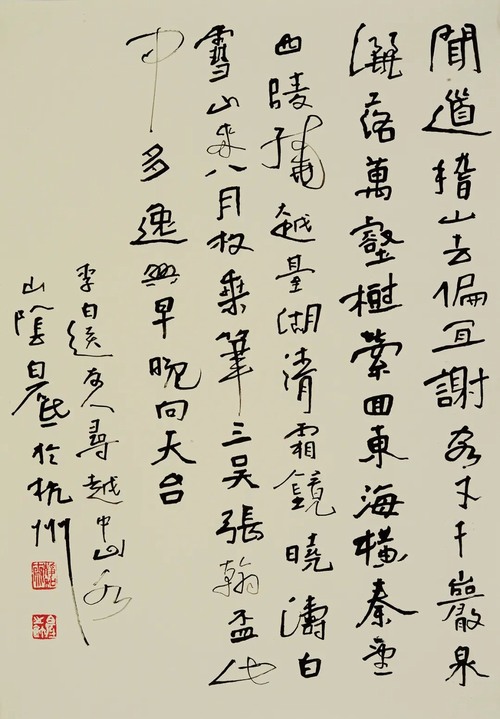 聞道稽山去偏宜謝客才千巖泉
灑落萬壑樹縈回東海橫秦望
西陵繞越臺湖清霜鏡曉濤白
雪山來八月枚乘筆三吳張翰盃此
中多逸興早晚向天台
李白送友人尋越中山水
山陰白砥於杭州